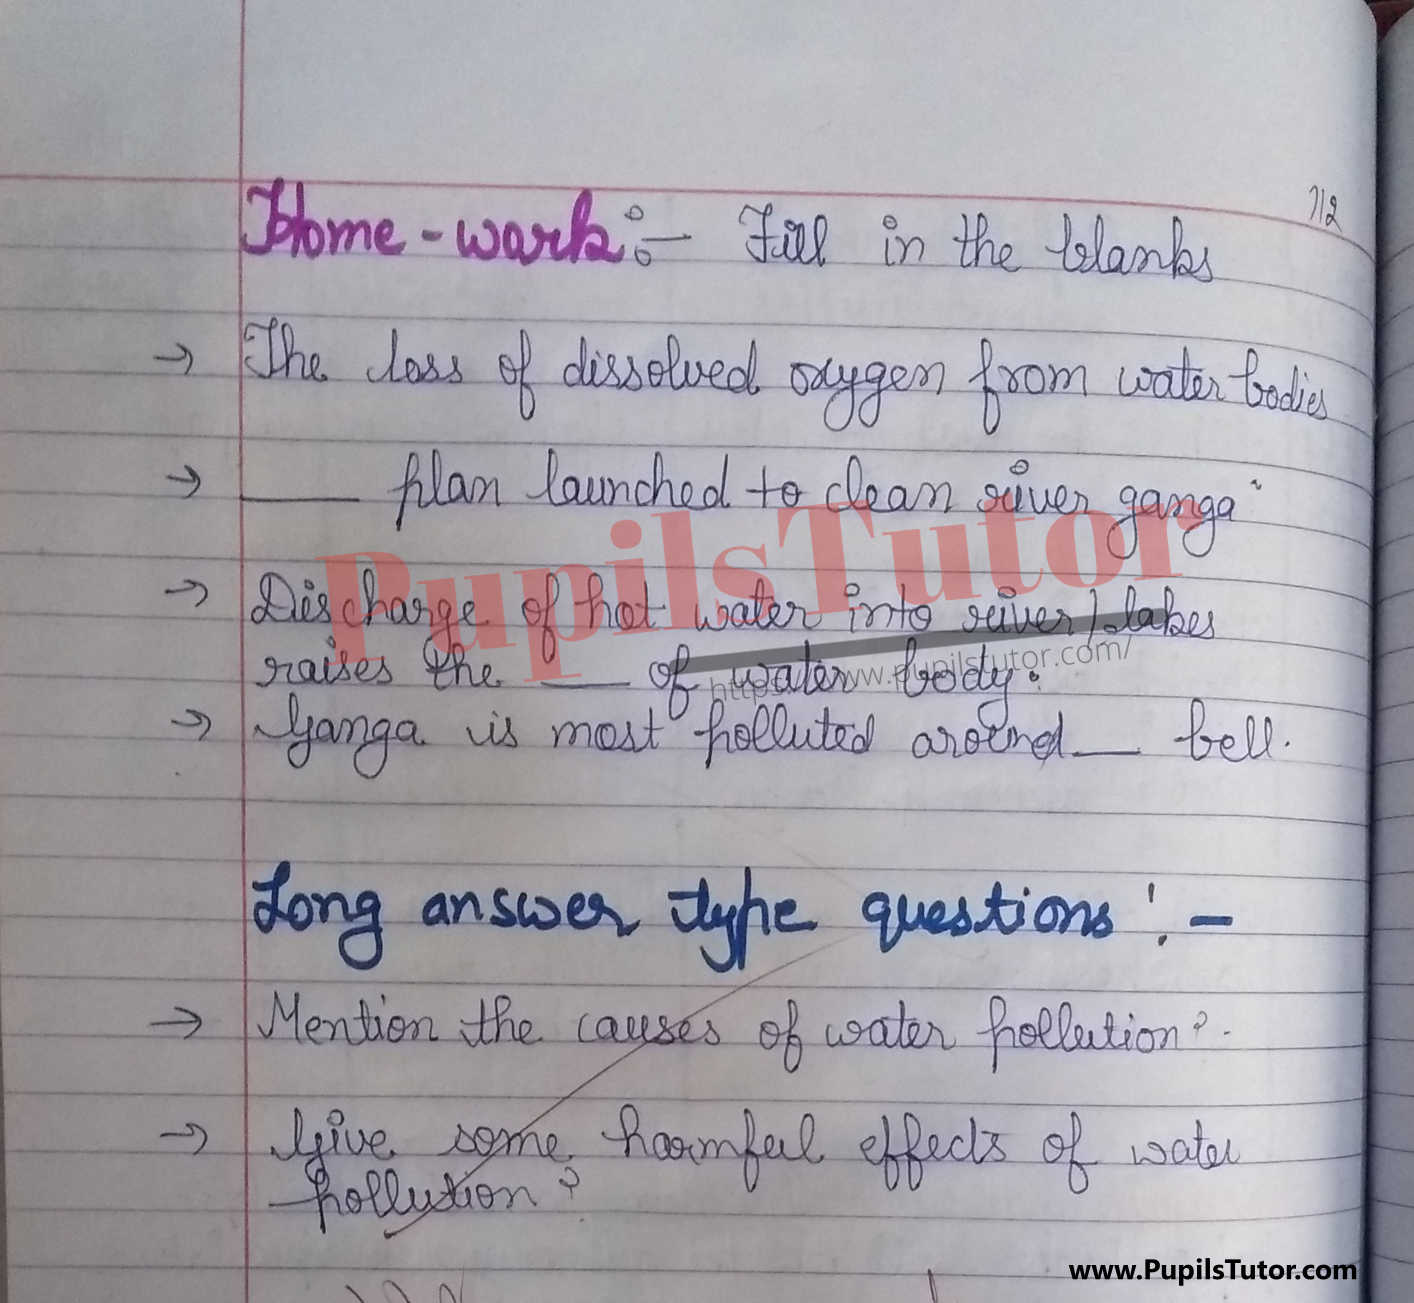 112
Home-work :- Fill in the blanks
→ The loss of dissolved oxygen from water bodies
→ ___ plan launched to clean river ganga
→ Discharge of hot water into river/lakes
raises the ___ of water body.
→ Ganga is most polluted around ___ bell.
PupilsTutor
https://www.pupilstutor.com/
Long answer type questions :-
→ Mention the causes of water pollution?
→ Give some harmful effects of water
pollution?
www.PupilsTutor.com